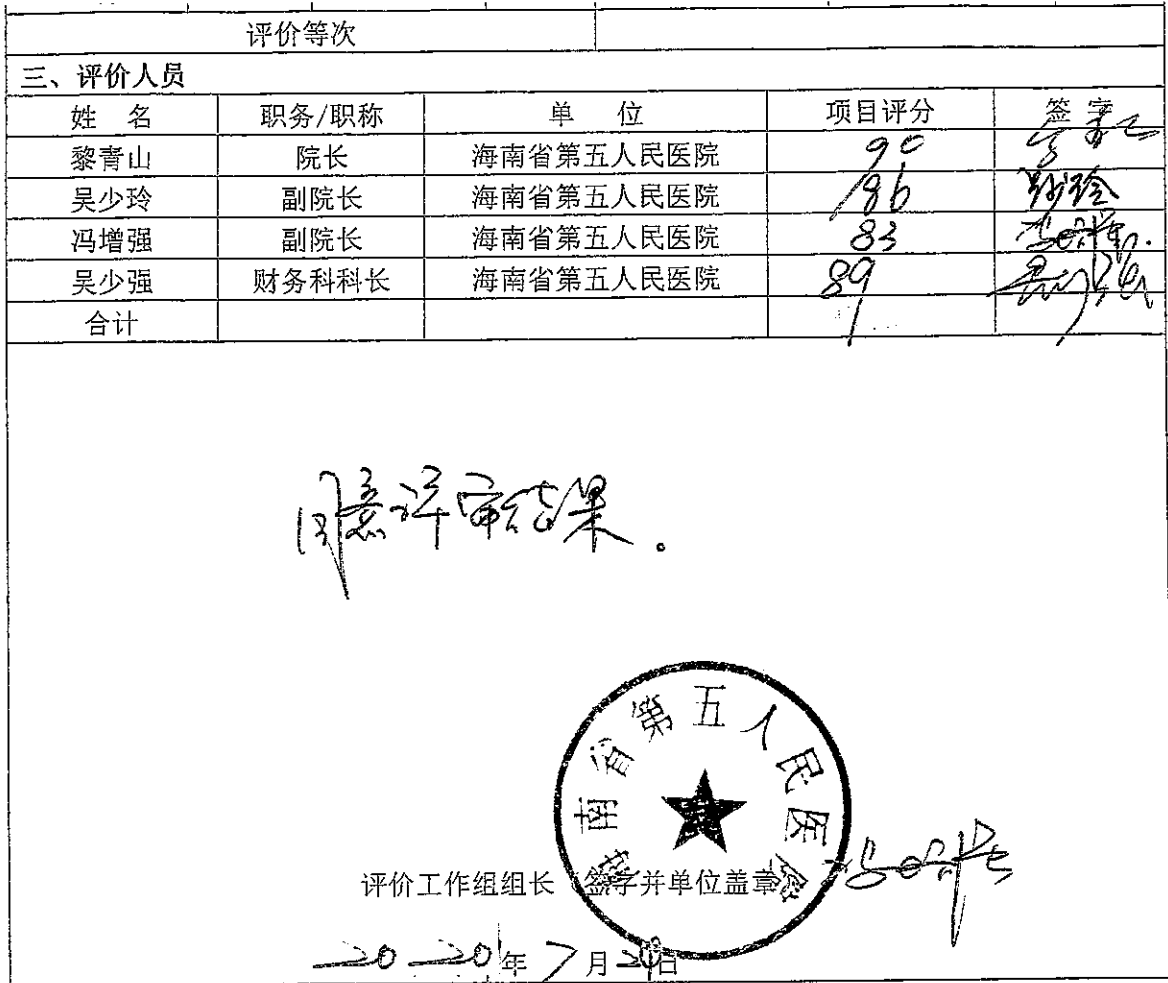 评价等次
三、评价人员
姓 名 职务/职称 单 位 项目评分 签 字
黎青山 院长 海南省第五人民医院 90
吴少玲 副院长 海南省第五人民医院 86
冯增强 副院长 海南省第五人民医院 83
吴少强 财务科科长 海南省第五人民医院 89
合计
同意评审结果。
海南省第五人民医院
评价工作组组长（签字并单位盖章
2020年7月29日